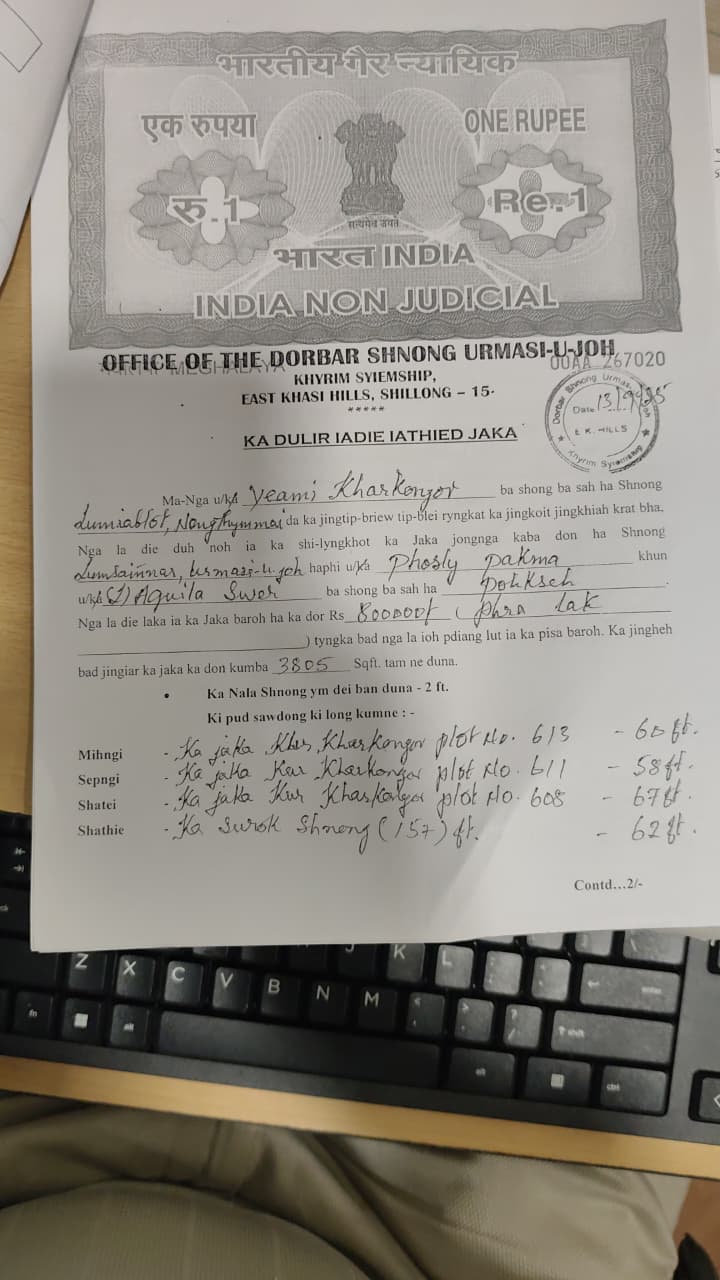 भारतीय गैर न्यायिक
एक रुपया ONE RUPEE
रु.1 Re.1
सत्यमेव जयते
भारत INDIA
INDIA NON JUDICIAL
MEGHALAYA
OFFICE OF THE DORBAR SHNONG URMASI-U-JOH
00AA 267020
KHYRIM SYIEMSHIP,
EAST KHASI HILLS, SHILLONG – 15.
*****
Dorbar Shnong Urmasi-u-Joh
Date 13/9/25
E.K. HILLS
Khyrim Syiemship
KA DULIR IADIE IATHIED JAKA
Ma-Nga u/ka Yeami Kharkongor ba shong ba sah ha Shnong
Lumiablot, Nongthymmai da ka jingtip-briew tip-blei ryngkat ka jingkoit jingkhiah krat bha.
Nga la die duh noh ia ka shi-lyngkhot ka Jaka jongnga kaba don ha Shnong
Lumsaiñnar, Urmasi-u-joh haphi u/ka Phosly Dakma khun
u/ka (L) Aquila Swer ba shong ba sah ha Pohkseh.
Nga la die laka ia ka Jaka baroh ha ka dor Rs 800000/ ( phra lak
) tyngka bad nga la ioh pdiang lut ia ka pisa baroh. Ka jingheh
bad jingiar ka jaka ka don kumba 3805 Sqft. tam ne duna.
• Ka Nala Shnong ym dei ban duna - 2 ft.
Ki pud sawdong ki long kumne : -
Mihngi - Ka jaka Khur Kharkongor plot No. 613 - 60 ft.
Sepngi - Ka jaka Kur Kharkongor plot No. 611 - 58 ft.
Shatei - Ka jaka Kur Kharkongor plot No. 608 - 67 ft.
Shathie - Ka Surok Shnong (157) ft. - 62 ft.
Contd...2/-
J K L
Z X C V B N M
fn alt
alt ctrl
shift